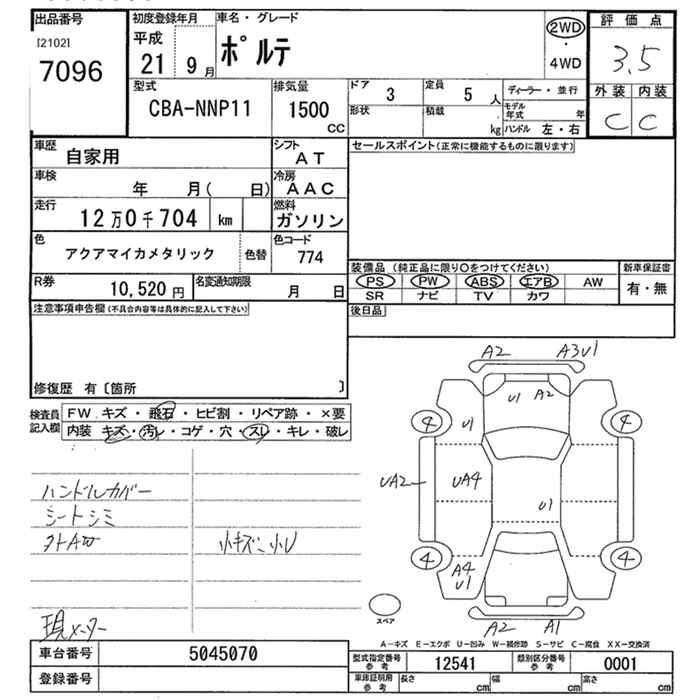 出品番号
[2102]
7096
初度登録年月
平成
21 9月
車名・グレード
ポルテ
2WD
・
4WD
評価点
3.5
外装 内装
C C
型式
CBA-NNP11
排気量
1500
CC
ドア
3
形状
定員
5 人
積載
kg
ディーラー・並行
モデル年式 年
ハンドル 左・右
車歴
自家用
シフト
AT
車検
年 月( 日)
冷房
AAC
走行
12万0千704 km
燃料
ガソリン
色
アクアマイカメタリック
色替
色コード
774
R券
10,520 円
名変通知期限
月 日
セールスポイント(正常に機能するものに限ります)
装備品 (純正品に限り○をつけてください)
新車保証書
PS PW ABS エアB AW
有・無
SR ナビ TV カワ
後日品
注意事項申告欄(不具合内容等は具体的に記入して下さい)
修復歴 有〔箇所 〕
検査員記入欄
FW キズ・飛石・ヒビ割・リペア跡・×要
内装 キズ・汚レ・コゲ・穴・スレ・キレ・破レ
ハンドルカバー
シートシミ
小キズ、小U
現メーター
A2 A3U1
U1 A2
4 U1 4
UA2 UA4
U1
4 A4 4
U1
スペア
A2 A1
A-キズ E-エクボ U-凹み W-補修跡 S-サビ C-腐食 XX-交換済
車台番号 5045070
登録番号
型式指定番号参考 12541
類別区分番号参考 0001
車庫証明用参考
長さ cm
幅 cm
高さ cm